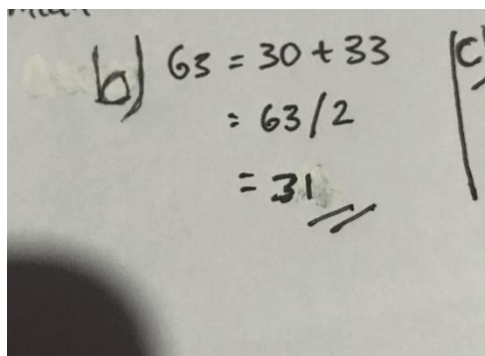 b) 63 = 30 + 33
= 63/2
= 31
c)